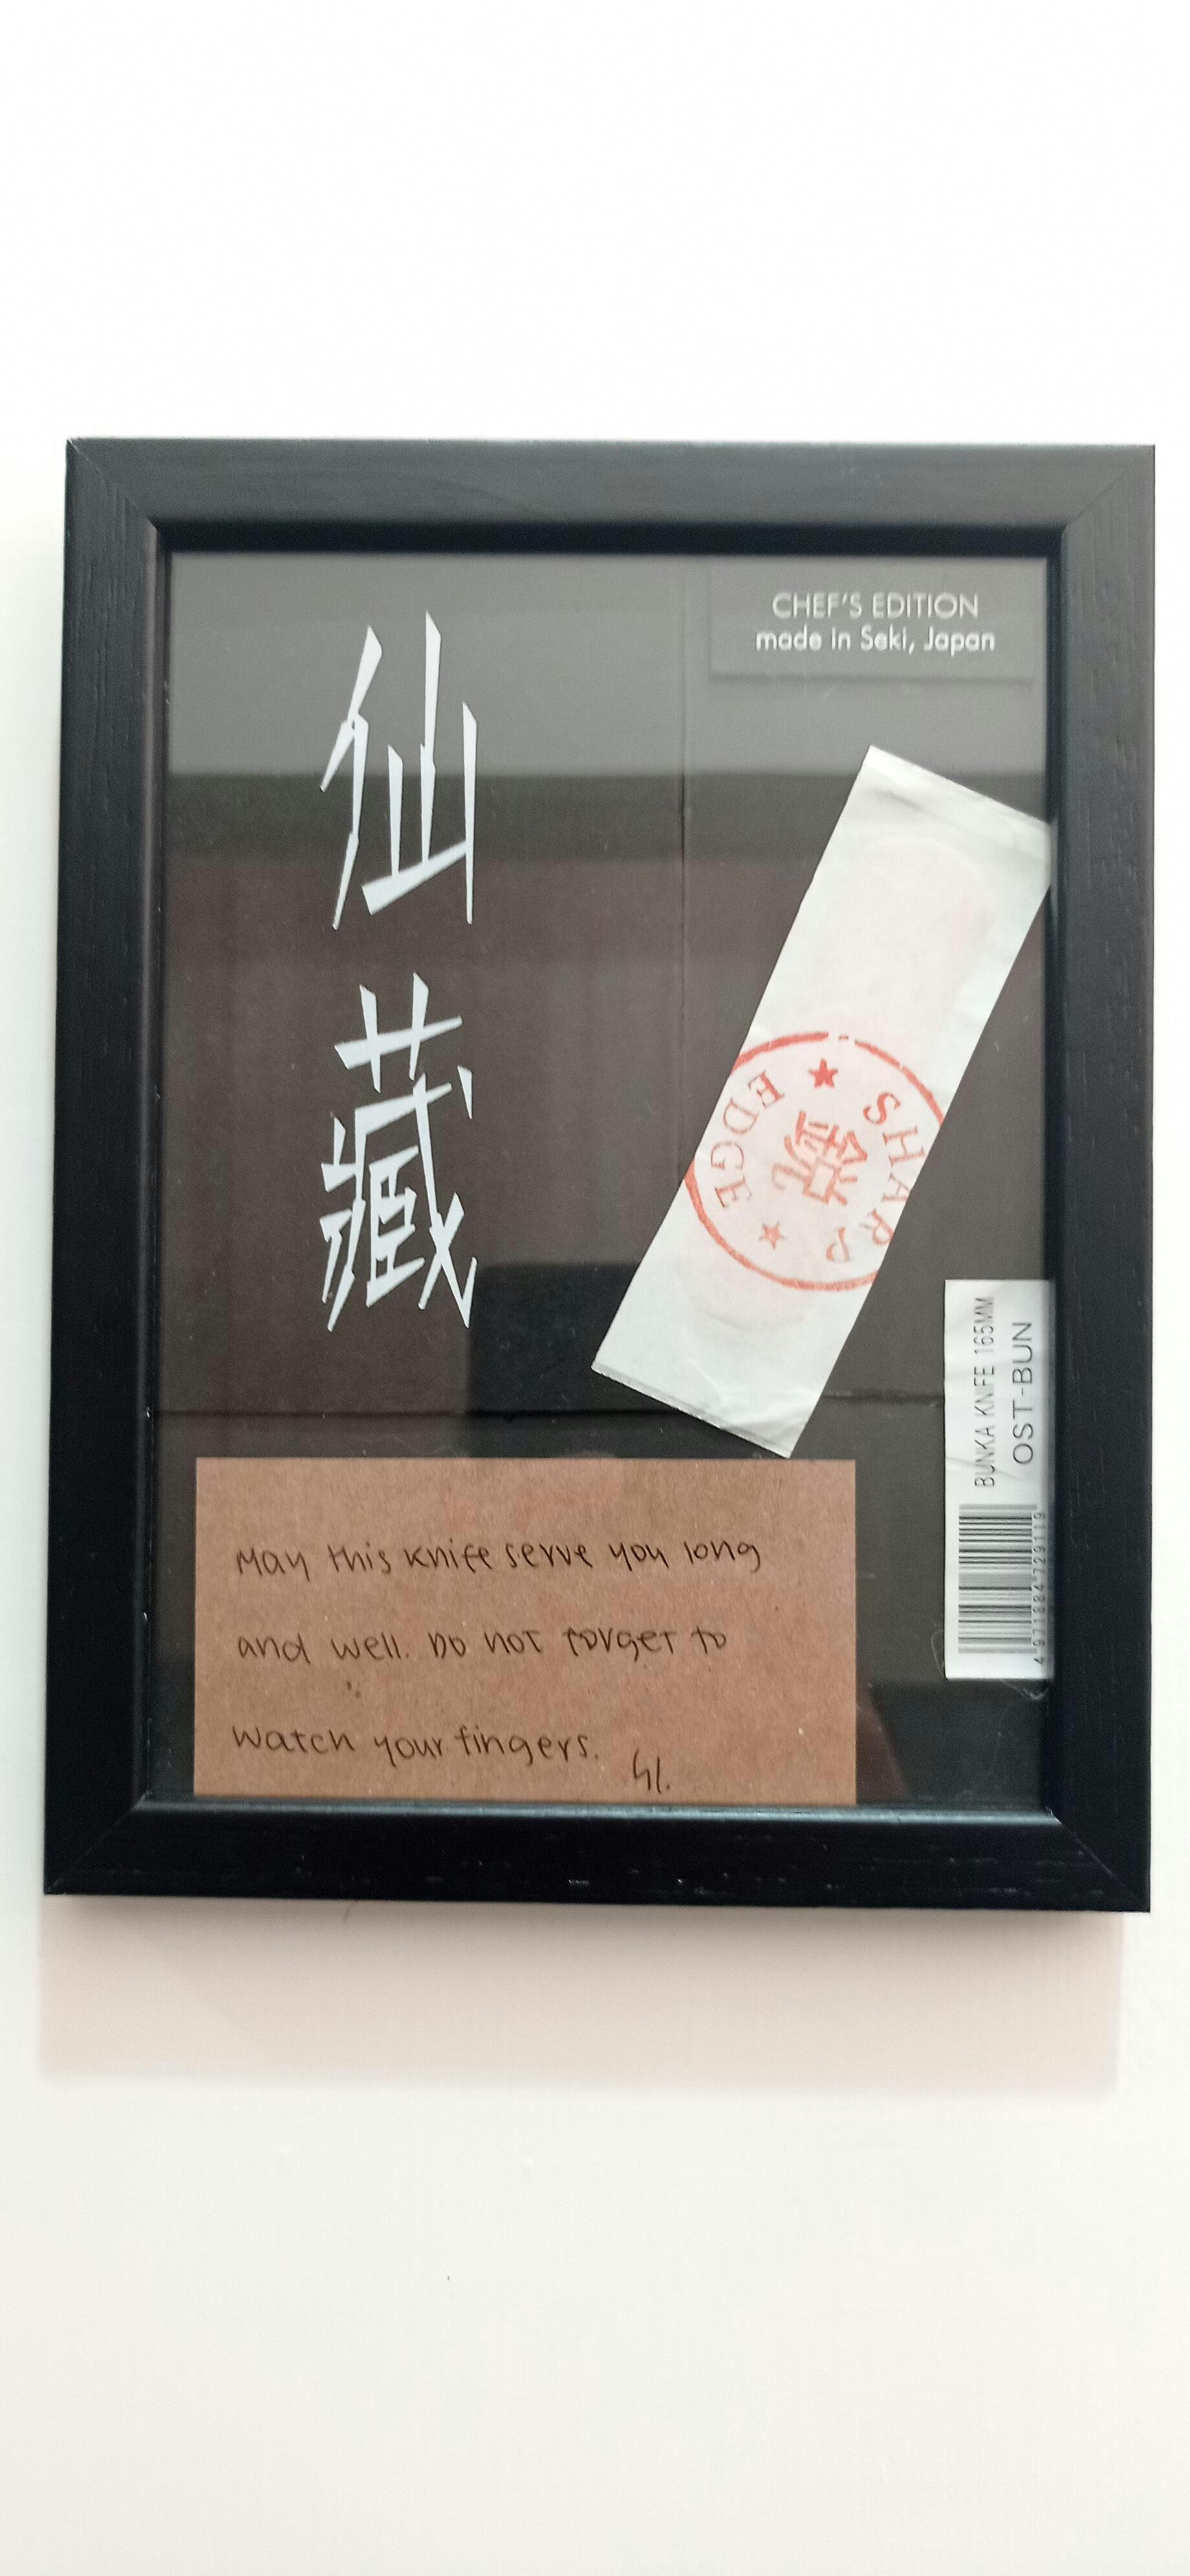 仙藏
CHEF'S EDITION
made in Seki, Japan
SHARP EDGE
鋭
BUNKA KNIFE 165MM
OST-BUN
4 971884 729119
May this knife serve you long
and well. Do not forget to
watch your fingers.